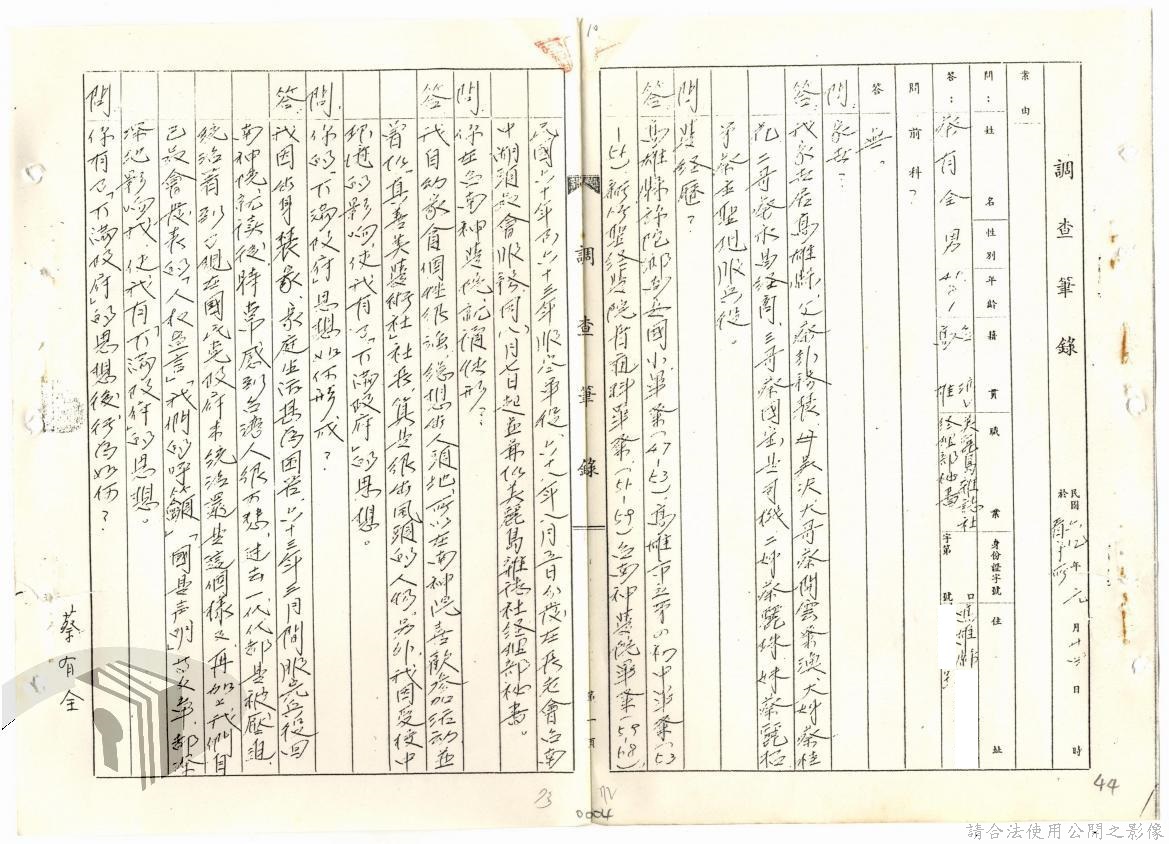 調查筆錄
民國 年元月 日 時
於
案由
問：姓名 性別 年齡 籍貫 職業 身份證字號 住址
答：蔡有全 男 高雄 美麗島雜誌社經理部祕書 字第 號 高雄縣
問 前科？
答 無。
問 家世？
答 我家世居高雄縣，父蔡 務農，母吳 大哥蔡開雲業漁、大姊蔡桂
花、二哥蔡永 經商、三哥蔡國 是司機、二姊蔡麗珠、妹蔡麗
予蔡 聖 服兵役。
問 學經歷？
答 高雄縣彌陀鄉 國小畢業（47-53）高雄市立第四初中畢業（53
-56）新竹聖經學院 科畢業（56-59）台南神學院畢業（59-68）
民國六十年 六十三年服空軍役，六十八年八月五日分發在長老會台南
中湖頭教會服務，同（八）月七日起並兼任美麗島雜誌社經理部祕書。
問 你在台南神學院就讀情形？
答 我自幼家貧個性很強，總想出人頭地，所以在南神院喜歡參加活動並
曾任「真善美學術社」社長，算是很出風頭的人物，另外，我因受校中
環境的影响，使我有了「不滿政府」的思想。
問 你的「不滿政府」思想如何形成？
答 我因出身農家，家庭生活甚為困苦，六十三年三月間服完兵役回
南神院就讀後，時常感到台灣人很可悲，過去一代代都是被壓迫、
統治著，到了現在國民黨政府來統治還是這個樣子，再加上我們自
己教會發表的「人權宣言」「我們的呼籲」「國是声明」等文章都深
深地影响我，使我有了「不滿政府」的思想。
問 你有了「不滿政府」的思想後，行為如何？
蔡有全
調查筆錄
第一頁
44
73
72
0004
請合法使用公開之影像